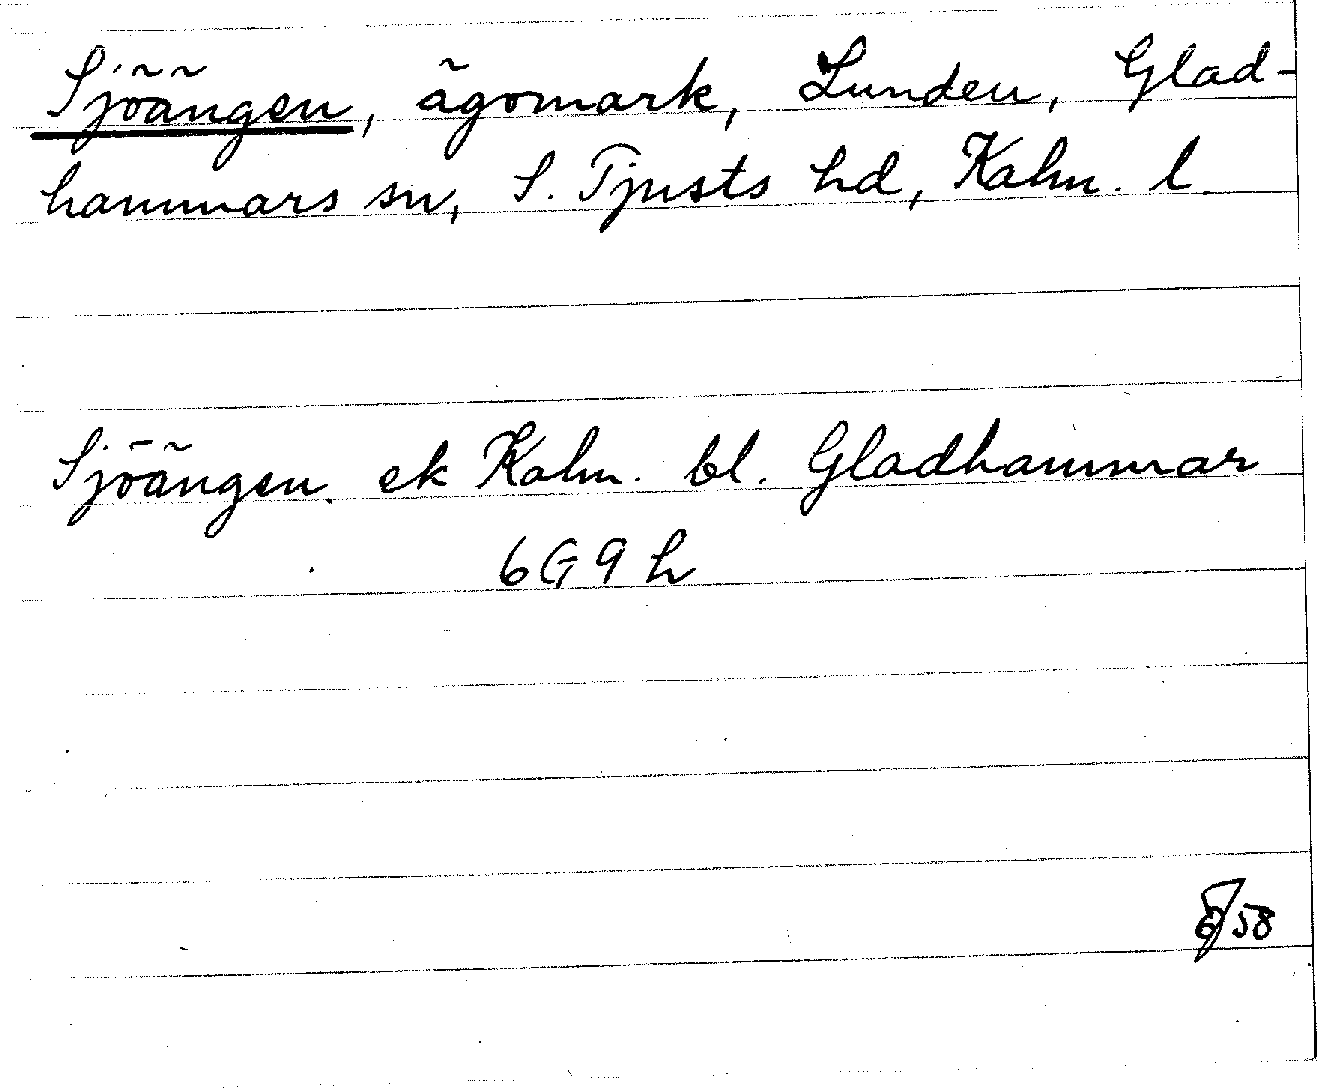 Sjöängen, ägomark, Lunden, Glad-
hammars sn, S. Tjusts hd, Kalm. l.
Sjöängen. ek Kalm. bl. Gladhammar
6G9h
58